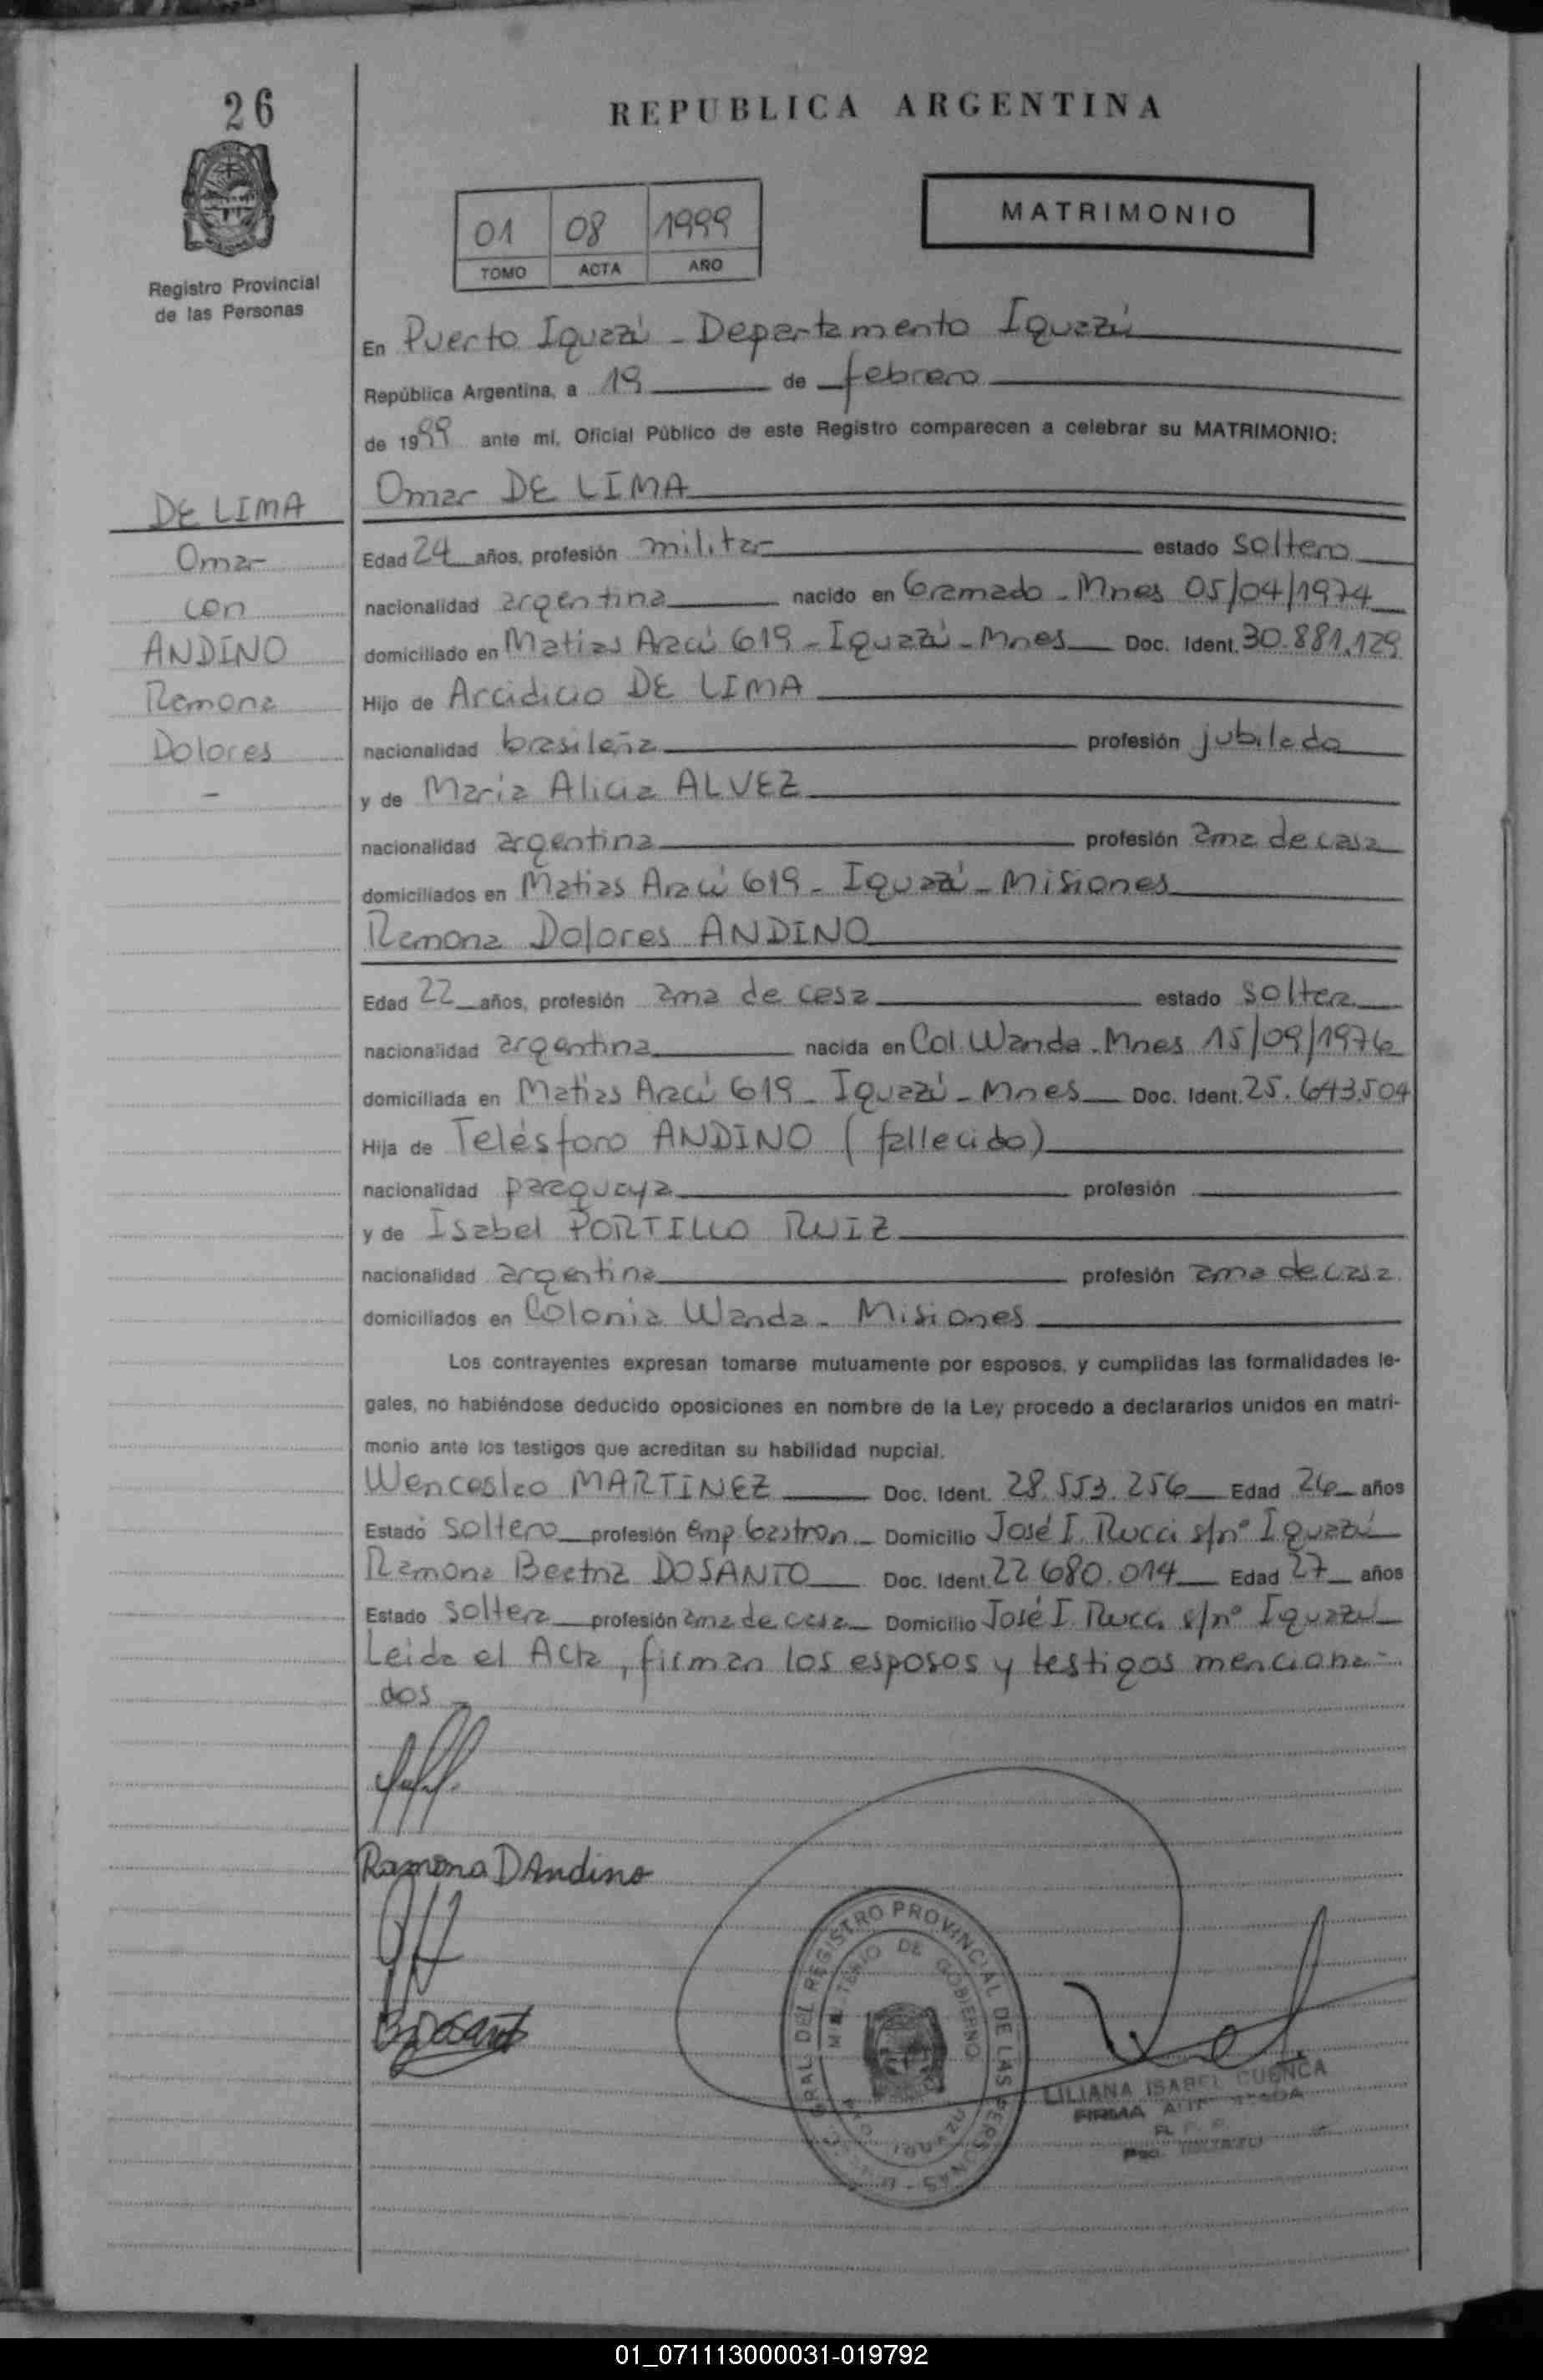 26
REPUBLICA ARGENTINA
Registro Provincial
de las Personas
01 08 1999
TOMO ACTA AÑO
MATRIMONIO
En Puerto Iguazú - Departamento Iguazú
República Argentina, a 19 de febrero
de 1999 ante mí, Oficial Público de este Registro comparecen a celebrar su MATRIMONIO:
DE LIMA
Omar
con
ANDINO
Ramona
Dolores
-
Omar DE LIMA
Edad 24 años, profesión militar estado soltero
nacionalidad argentina nacido en Gramado - Mnes 05/04/1974
domiciliado en Matias Aracú 619 - Iguazú - Mnes Doc. Ident. 30.881.129
Hijo de Arcidicio DE LIMA
nacionalidad brasileña profesión jubilado
y de Maria Alicia ALVEZ
nacionalidad argentina profesión ama de casa
domiciliados en Matias Aracú 619 - Iguazú - Misiones
Ramona Dolores ANDINO
Edad 22 años, profesión ama de casa estado soltera
nacionalidad argentina nacida en Col. Wanda - Mnes 15/09/1976
domiciliada en Matias Aracú 619 - Iguazú - Mnes Doc. Ident. 25.643.504
Hija de Telésforo ANDINO (fallecido)
nacionalidad paraguaya profesión
y de Isabel PORTILLO RUIZ
nacionalidad argentina profesión ama de casa
domiciliados en Colonia Wanda - Misiones
Los contrayentes expresan tomarse mutuamente por esposos, y cumplidas las formalidades le-
gales, no habiéndose deducido oposiciones en nombre de la Ley procedo a declararlos unidos en matri-
monio ante los testigos que acreditan su habilidad nupcial.
Wenceslao MARTINEZ Doc. Ident. 28.553.256 Edad 26 años
Estado soltero profesión emp. Gastron. Domicilio José I. Rucci s/nº Iguazú
Ramona Beatriz DOSANTO Doc. Ident. 22.680.014 Edad 27 años
Estado soltera profesión ama de casa Domicilio José I. Rucci s/nº Iguazú
Leida el Acta, firman los esposos y testigos menciona-
dos
Ramona D Andino
GRAL. DEL REGISTRO PROVINCIAL DE LAS PERSONAS
MINISTERIO DE GOBIERNO
LILIANA ISABEL CUENCA
FIRMA AUTORIZADA
01_071113000031-019792